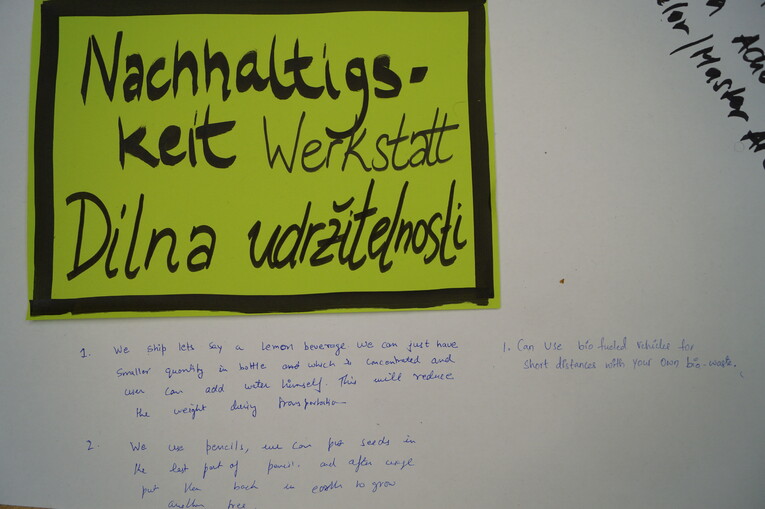 Nachhaltigs-
keit Werkstatt
Dílna udržitelnosti
1. We ship lets say a lemon beverage we can just have
smaller quantity in bottle and which is concentrated and
user can add water himself. This will reduce
the weight during transportation
2. We use pencils, we can put seeds in
the last part of pencil. and after usage
put them back in earth to grow
another tree.
1. Can use bio fueled vehicles for
short distances with your own bio-waste.
/Master